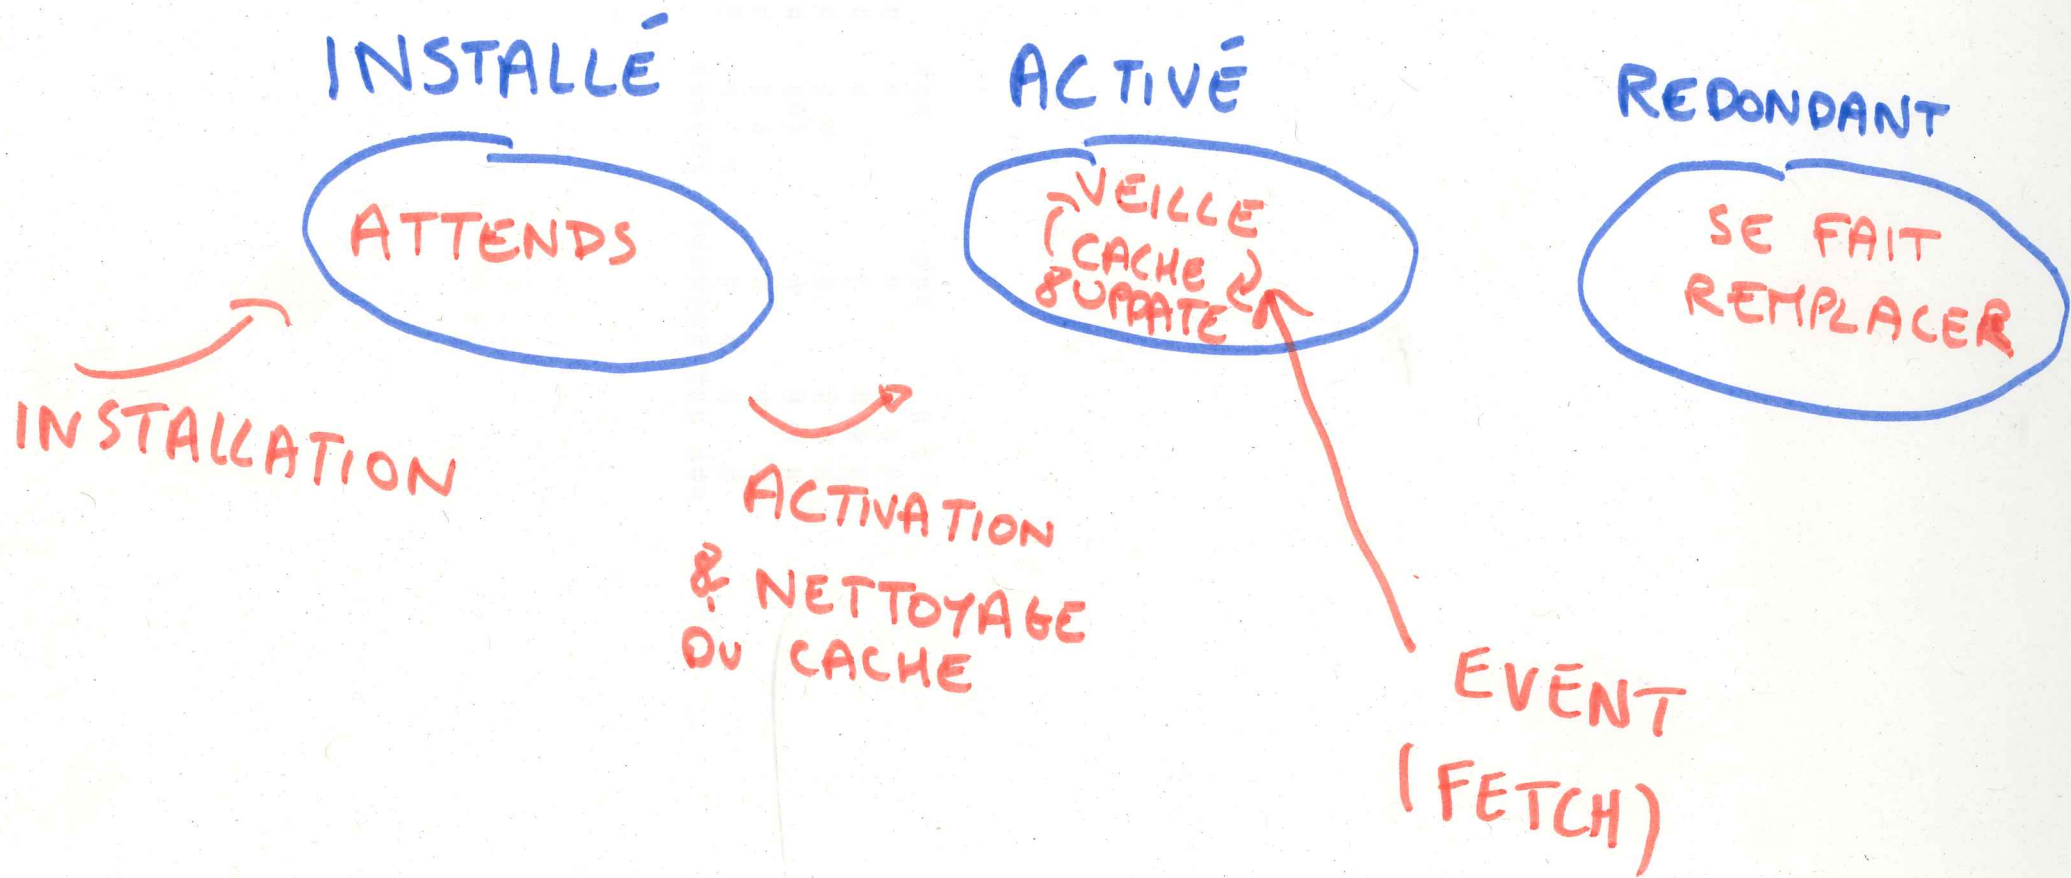 INSTALLÉ
ATTENDS
INSTALLATION
ACTIVÉ
VEILLE
CACHE
& UPDATE
ACTIVATION
& NETTOYAGE
DU CACHE
EVENT
(FETCH)
REDONDANT
SE FAIT
REMPLACER